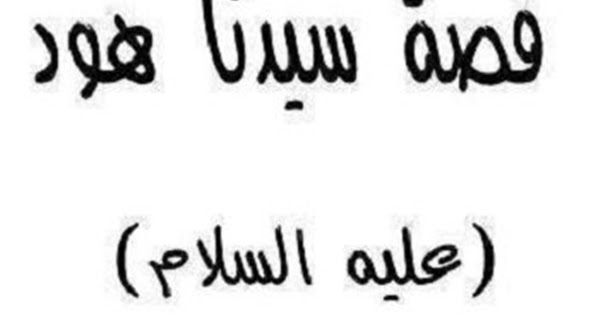 قصة سيدنا هود
(عليه السلام)